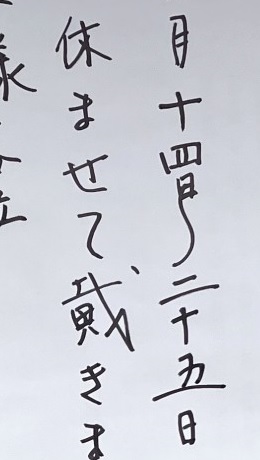 月十四日〜二十五日
休ませて戴きま
様